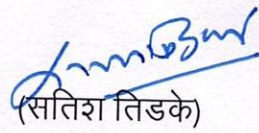 (सतिश तिडके)